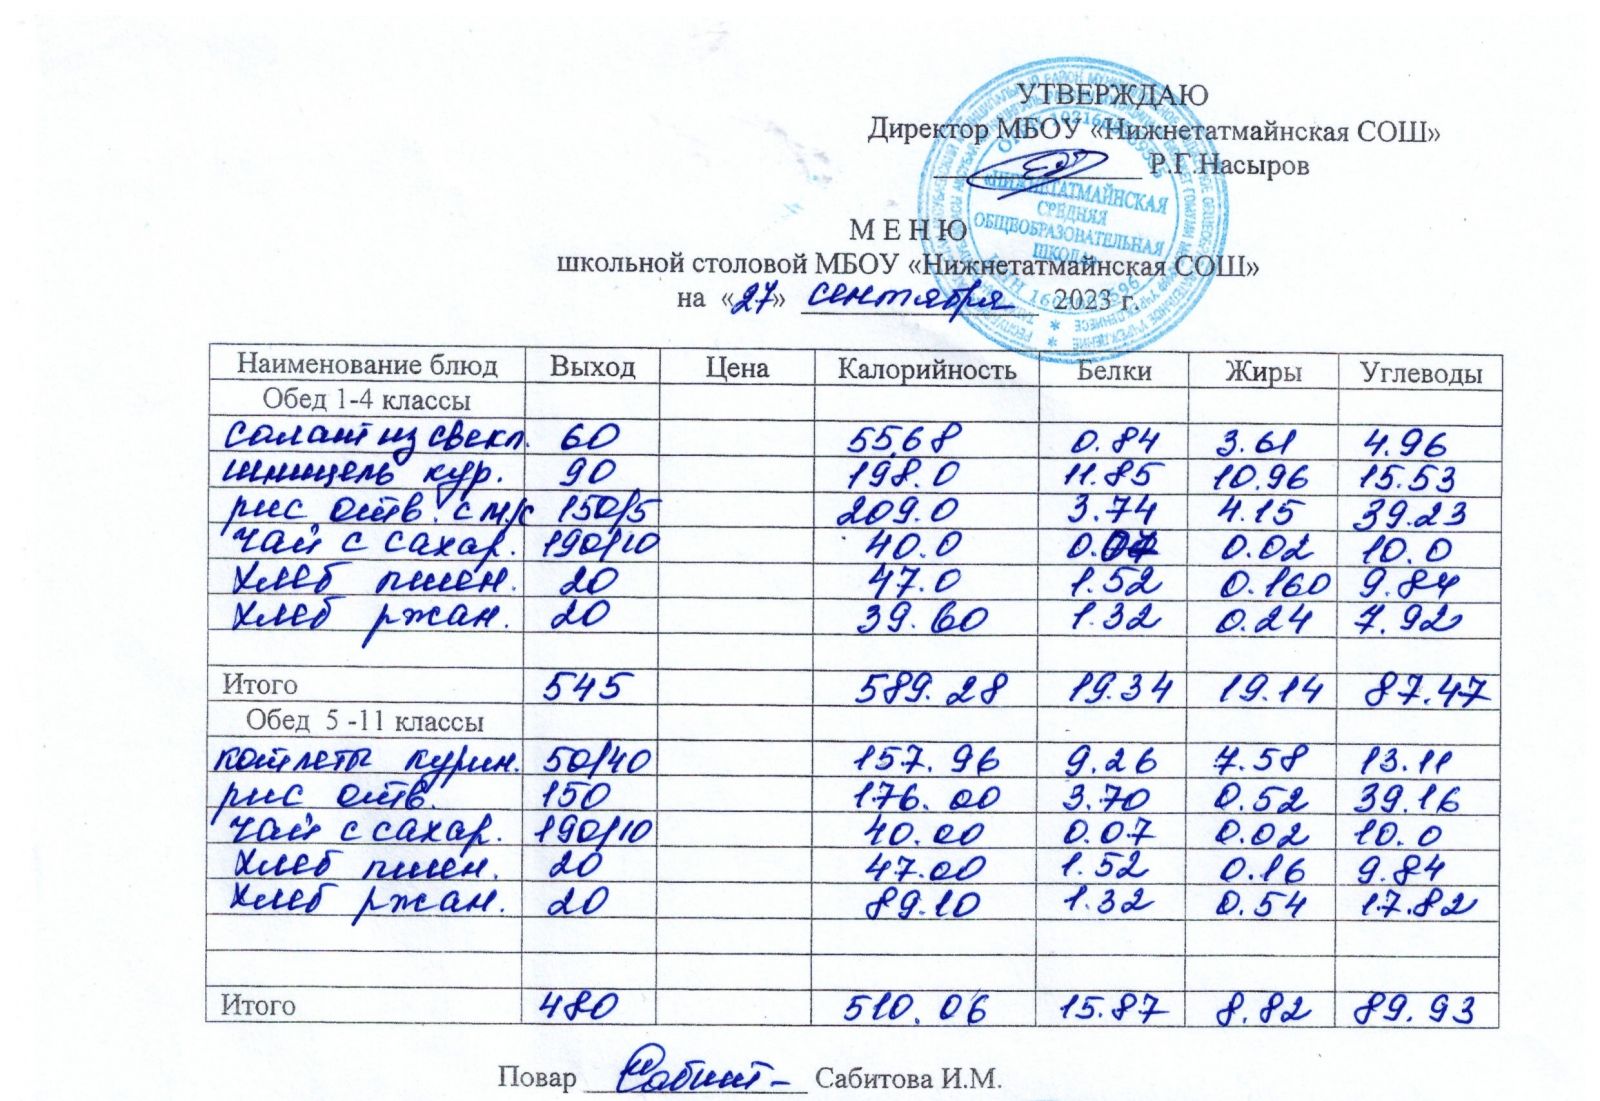 УТВЕРЖДАЮ
Директор МБОУ «Нижнетатмайнская СОШ»
Р.Г.Насыров
«НИЖНЕТАТМАЙНСКАЯ
СРЕДНЯЯ
ОБЩЕОБРАЗОВАТЕЛЬНАЯ
ШКОЛА»
М Е Н Ю
школьной столовой МБОУ «Нижнетатмайнская СОШ»
на «27» сентября 2023 г.
Наименование блюд Выход Цена Калорийность Белки Жиры Углеводы
Обед 1-4 классы
салат из свекл. 60 55,68 0.84 3.61 4.96
шницель кур. 90 198.0 11.85 10.96 15.53
рис отв. с м/с 150/5 209.0 3.74 4.15 39.23
чай с сахар. 190/10 40.0 0.07 0.02 10.0
хлеб пшен. 20 47.0 1.52 0.160 9.84
хлеб ржан. 20 39.60 1.32 0.24 7.92
Итого 545 589.28 19.34 19.14 87.47
Обед 5 -11 классы
котлеты курин. 50/40 157.96 9.26 7.58 13.11
рис отв. 150 176.00 3.70 0.52 39.16
чай с сахар. 190/10 40.00 0.07 0.02 10.0
хлеб пшен. 20 47.00 1.52 0.16 9.84
хлеб ржан. 20 89.10 1.32 0.54 17.82
Итого 480 510.06 15.87 8.82 89.93
Повар Сабит Сабитова И.М.